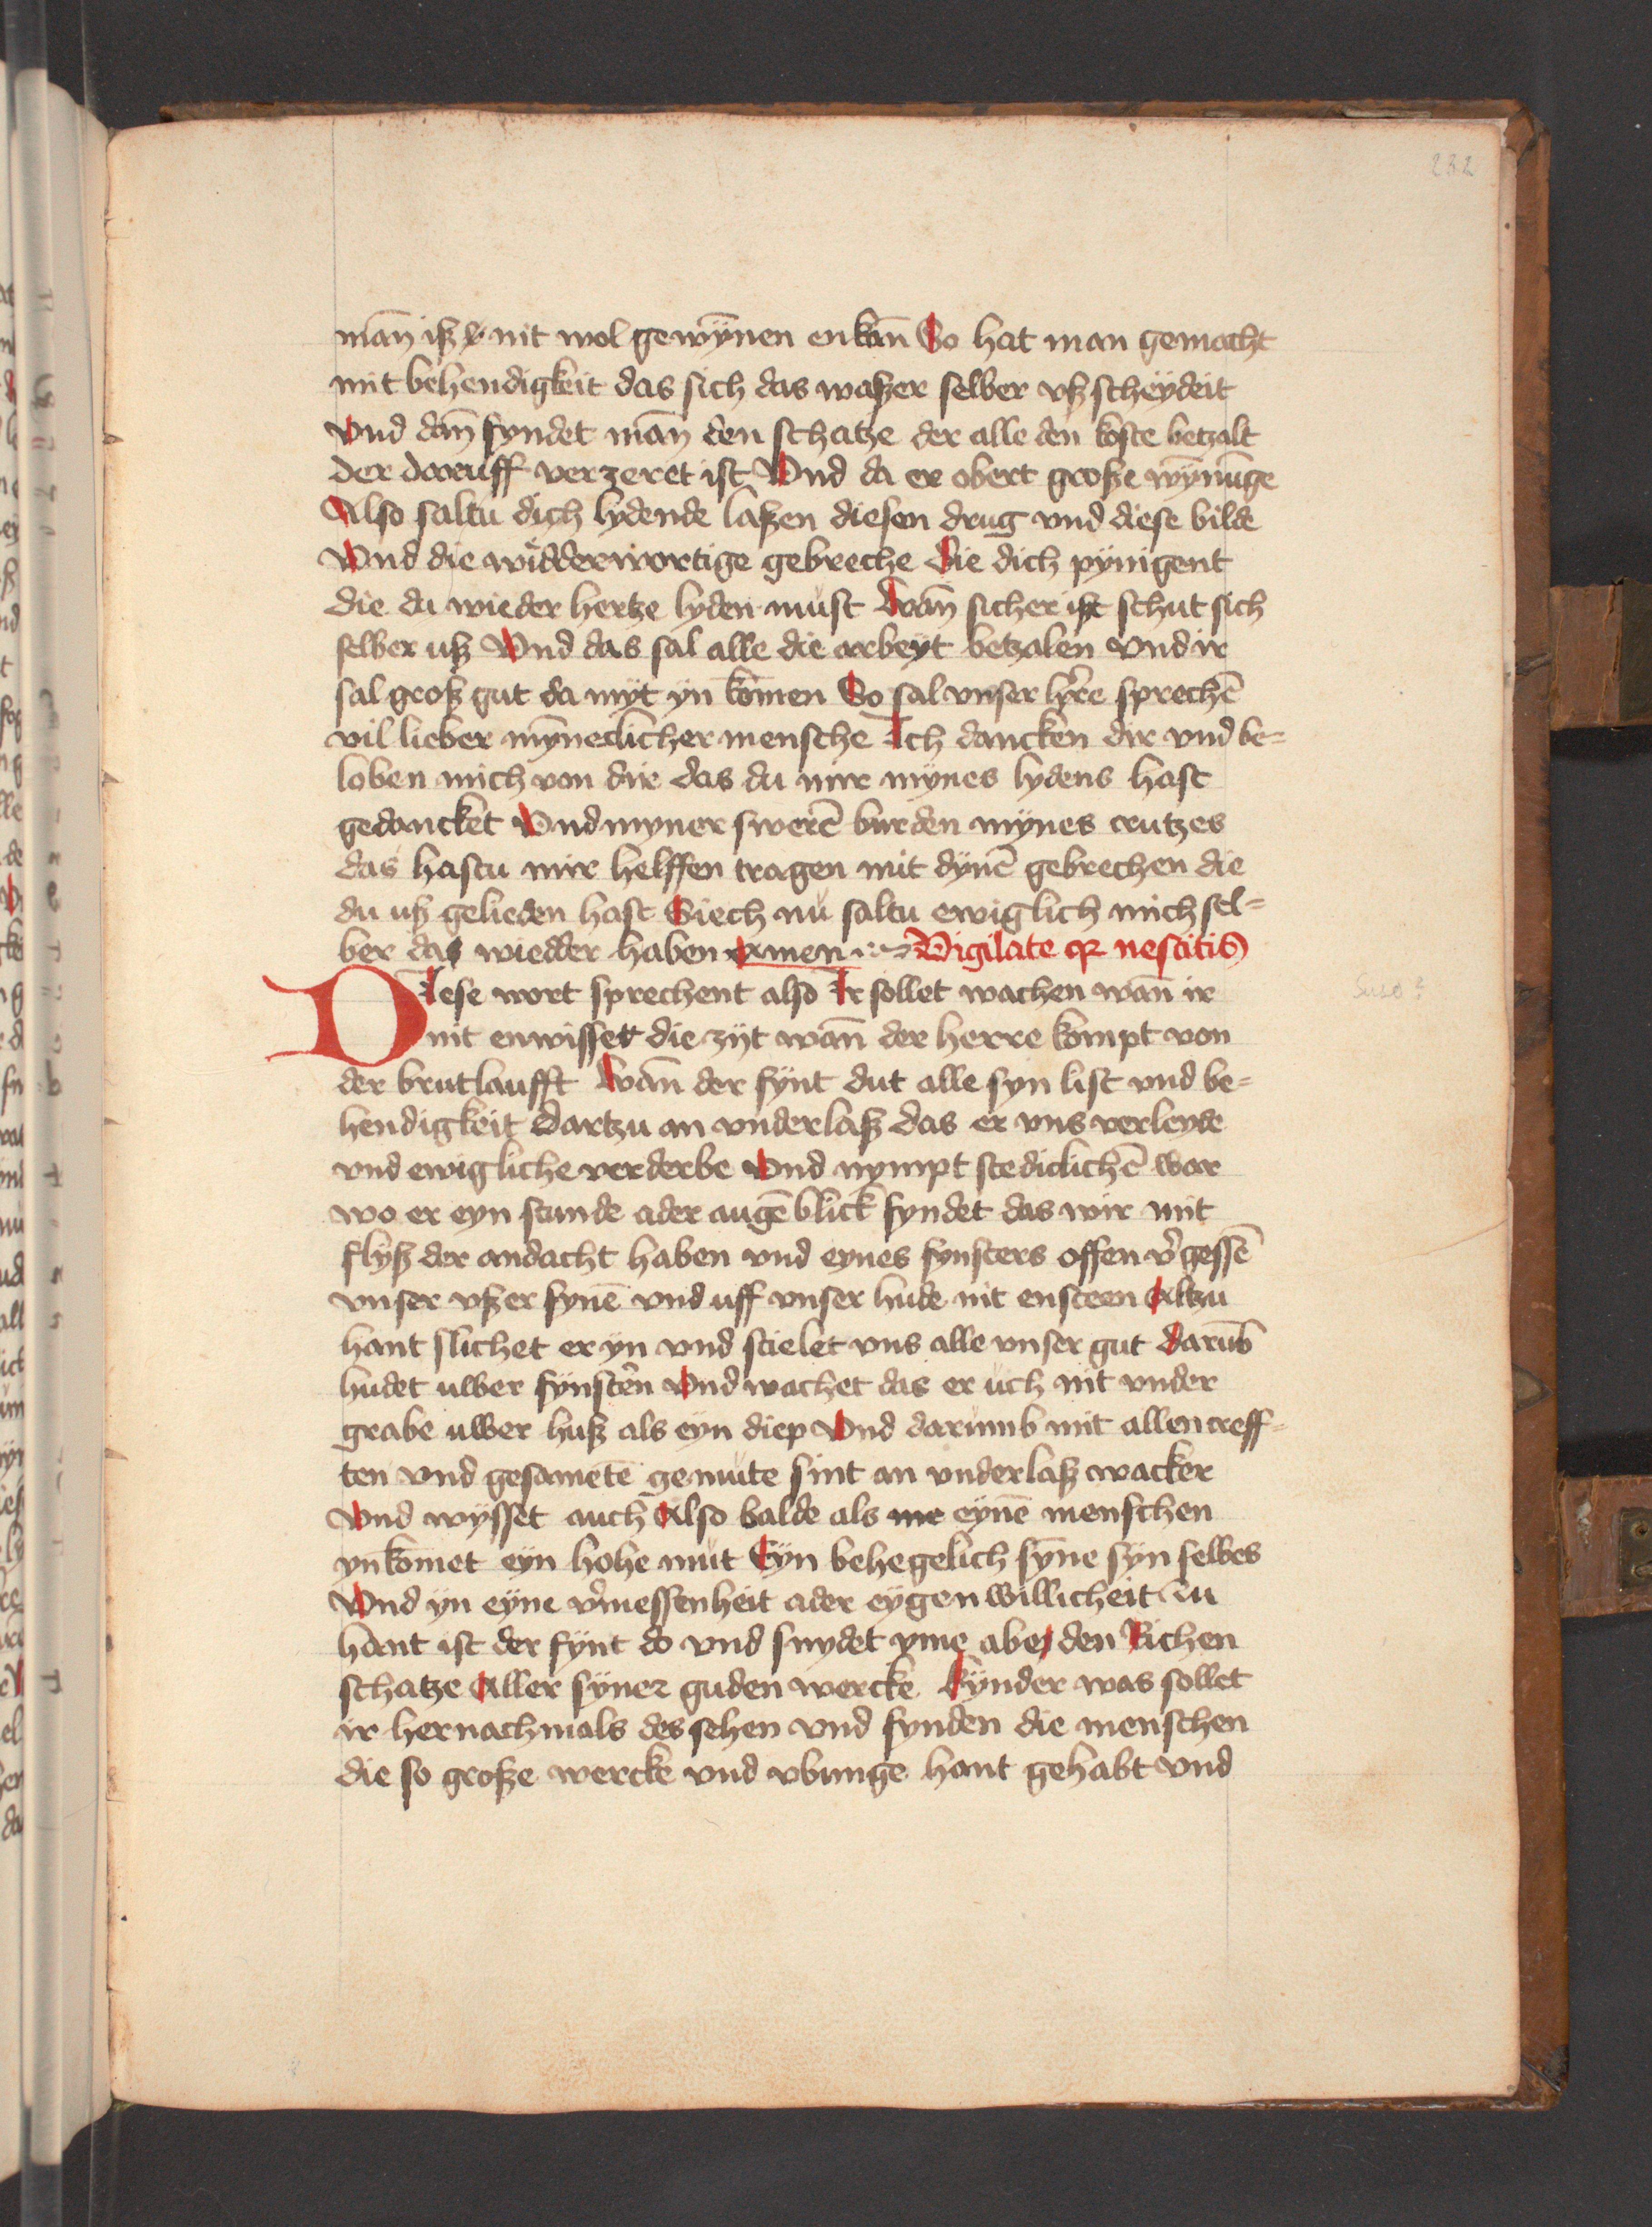 232
man̄ isz nit wol gewȳnen enkan̄ So hat man gemacht
mit behendigkeit das sich das waszer selber vsz scheydeit
Vnd dan̄ fyndet man̄ den schatze der alle den koste betzalt
der daruff verzeret ist Vnd da er obert grosze wȳnūge
Also saltu dich lydende laszen diesen drug vnd diese bilde
Vnd die widderwortige gebreche die dich pynigent
die du wieder hertze lyden must Wan̄ sicher iszt schut sich
selber usz Vnd das sal alle die arbeyt betzalen Vnd ir
sal grosz gut da myt yn kōmen So sal vnser h̄re sprechē
vil lieber mȳneclicher mensche Ich dancken dir vnd be=
loben mich von dir das du mir mynes lydens hast
gedancket Vnd myner swerē burden mynes crutzes
das hastu mir helffen tragen mit dynē gebrechen die
du usz gelieden hast Siech nu saltu ewiglich mich sel=
ber das wiedder haben Amen Vigilate qr nescitis
Diese wort sprechent also Ir sollet wachen wan̄ ir
nit enwisset die zyt wan̄ der herre kompt von
der brutlaufft Wan̄ der fynt dut alle syn list vnd be=
hendigkeit dartzu an vnderlasz das er vns verleyde
vnd ewigliche verderbe Vnd nympt stediclichē war
wo er eyn stunde ader augēblick fyndet das wir mit
flysz der andacht haben vnd eynes fynsters offen v̓gessē
vnser vszer synē vnd uff vnser hude nit ensteen Altzu
hant slichet er yn vnd stielet vns alle vnser gut darūb
hudet uwer fynst̓en Vnd wachet das er uch nit vnder
grabe uwer husz als eyn diep Vnd darumb mit allen creff=
ten vnd gesametē gemute sint an vnderlasz wacker
Vnd wysset auch Also balde als me eynē menschen
ynkōmet eyn hohe mut Eyn behegelich syne syn selbes
Vnd yn eyne v̓messenheit ader eygenwillicheit Zu
hant ist der fynt do vnd snydet yme abe den Richen
schatze Aller syner guden wercke Kynder was sollet
ir hernachmals des sehen vnd fynden die menschen
die so grosze wercke vnd vbunge hant gehabt Vnd
Suso?